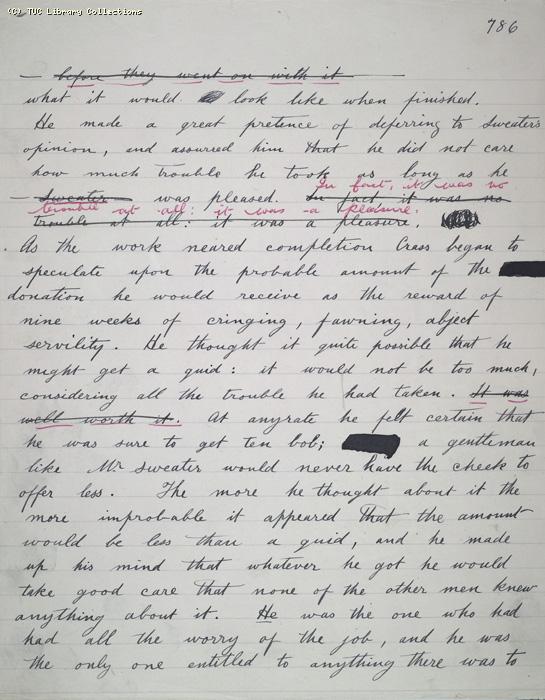 (C) TUC Library Collections
786
before they went on with it
what it would look like when finished.
He made a great pretence of deferring to Sweaters
opinion, and assurred him that he did not care
how much trouble he took as long as he
In fact, it was no
Sweater was pleased. In fact it was no
trouble at all: it was a pleasure.
trouble at all: it was a pleasure.
As the work neared completion Crass began to
speculate upon the probable amount of the
donation he would receive as the reward of
nine weeks of cringing, fawning, abject
servility. He thought it quite possible that he
might get a quid: it would not be too much,
considering all the trouble he had taken. It was
well worth it. At anyrate he felt certain that
he was sure to get ten bob; a gentleman
like Mr Sweater would never have the cheek to
offer less. The more he thought about it the
more improbable it appeared that the amount
would be less than a quid, and he made
up his mind that whatever he got he would
take good care that none of the other men knew
anything about it. He was the one who had
had all the worry of the job, and he was
the only one entitled to anything there was to